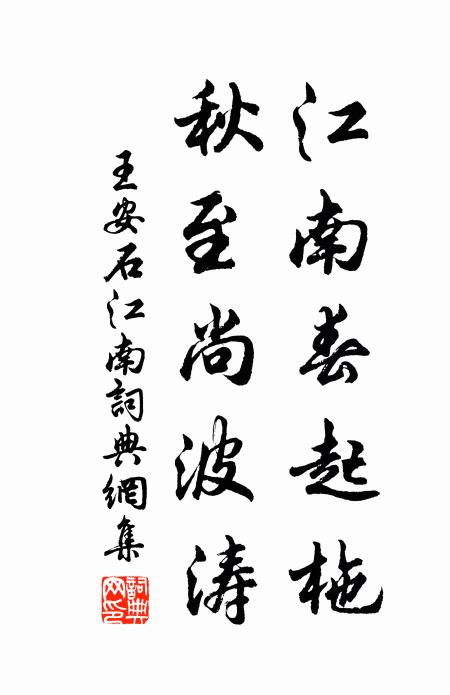 江南春起柂
秋至尚波涛
王安石江南詞典網集
詞典網印